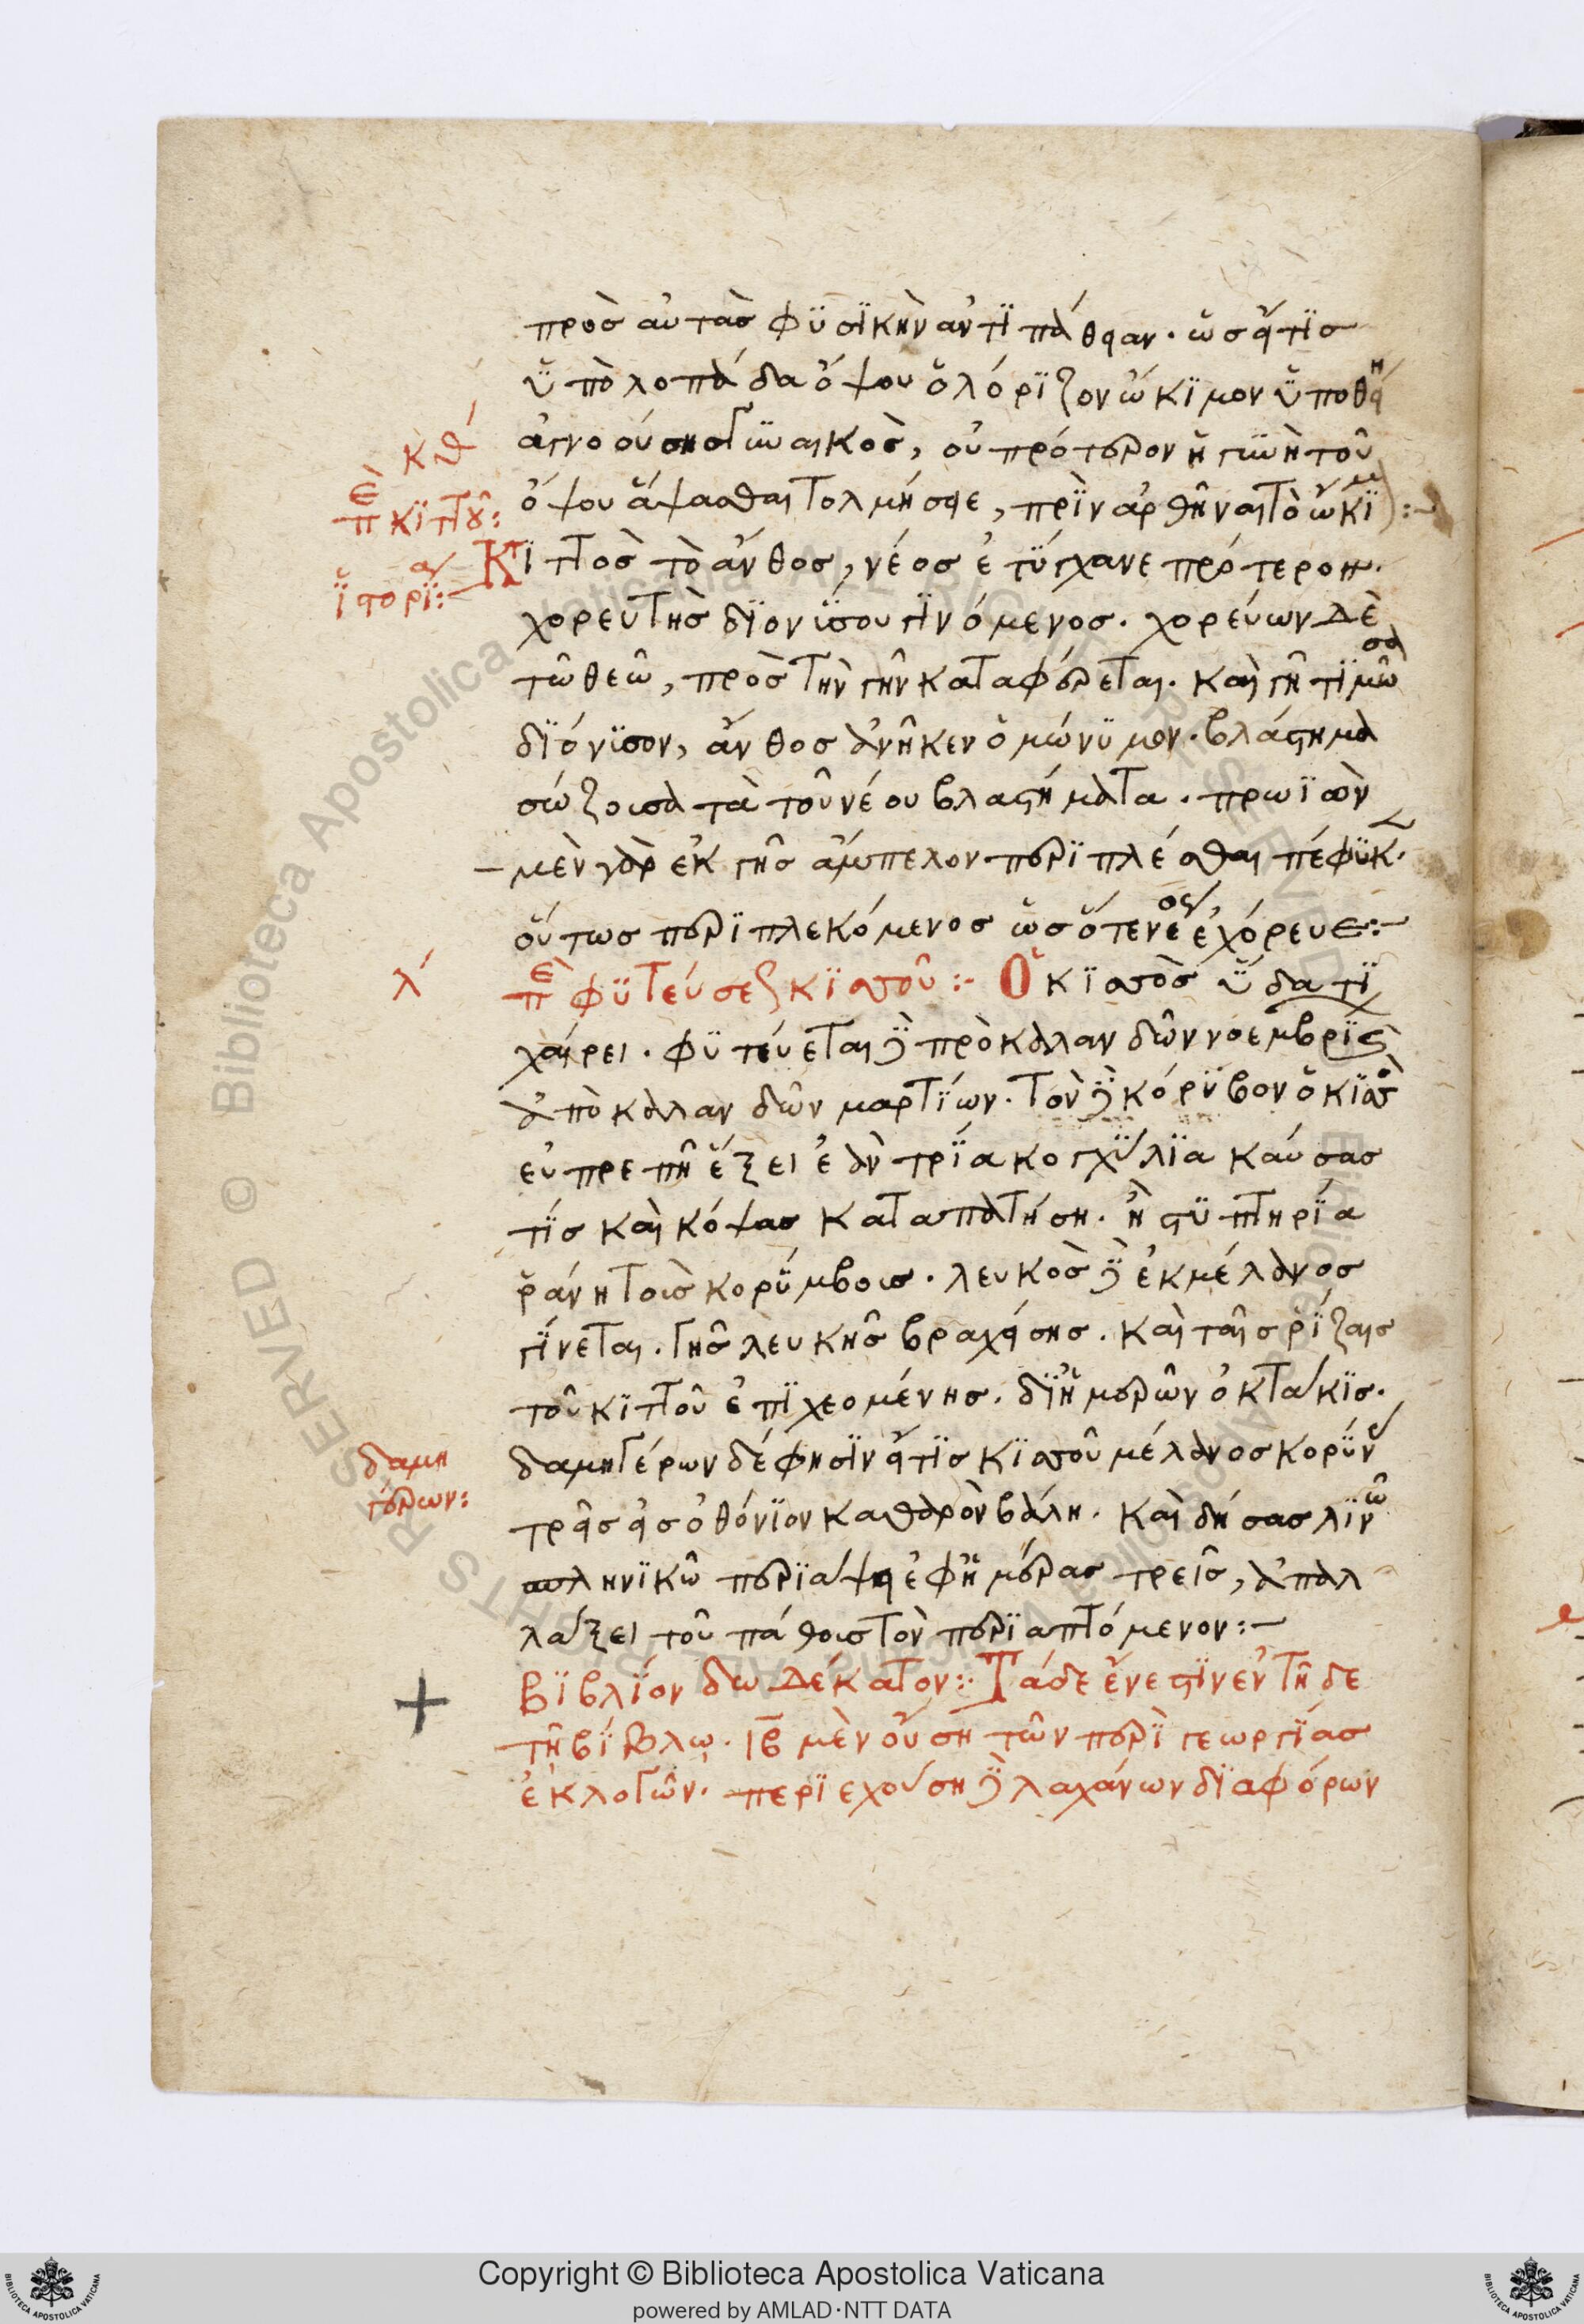 πρὸς αὐτὰς φϋσϊκὴν ἀντϊπάθειαν. ὥσ εἴ τϊς
ὕπὸ λοπάδα ὄψου ὅλόρϊζον ὤκϊμον ὕποθείη
κθ´
ἀγνοούσης γϋναικὸς, οὐ πρότερον ἡ γϋνὴ τοῦ
ὄψου ἅψασθαι τολμήσειε, πρῒν ἀρθῆναι τὸ ὤκϊμ :-
πὲ κϊττοῦ:
ἵστορϊα:-
Κϊττὸς τὸ ἄνθος, νέος ἐτύγχανε πρότερον.
χορευτὴς δϊονϋσου γϊνόμενος. χορεύων δὲ
τῶ θεῶ, πρὸς τὴν γῆν καταφέρεται. καὶ γῆ τϊμῶσα
δϊόνϊσον, ἄνθος ἀνῆκεν ὅμώνϋμον. βλάστημα
σώζουσα τὰ τοῦ νέου βλαστήματα. πρωϊὸν
μὲν γὰρ ἐκ γῆς ἄμπελον περϊπλέσθαι πέφϋκ.
οὕτως περϊπλεκόμενος ὥς ὅτε νέος ἐχόρευε:-
λ´
πὲ φϋτεύσεως κϊσσοῦ :- Ὁ κϊσσὸς ὕδατϊ
χαίρει. φϋτεύεται δὲ πρὸ καλανδῶν νοεμβρϊ
ἀπὸ καλανδῶν μαρτϊων. τὸν δὲ κόρϋβον ὁ κϊσσὸς
εὐπρεπῆ ἕξει ἐὰν τρϊα κογχϋλϊα καύσας
τϊς καὶ κόψας καταπατήση. ἢ στϋπτηρϊα
ῥάνη τοῖς κορϋμβοις. λευκὸς δὲ ἐκ μέλανος
γϊνεται. γῆς λευκῆς βραχείσης. καὶ ταῖς ῥϊζαις
τοῦ κϊττοῦ ἐπϊχεομένης. δϊ ἡμερῶν ὀκτάκϊς.
δαμη
γέρων:
δαμηγέρων δέ φησϊν εἴ τϊς κϊσσοῦ μέλανος κορϋν
τρεῖς εἰς ὀθόνϊον καθαρὸν βάλη. καὶ δήσας λϊνῶ
σπληνϊκῶ περϊάψει ἐφ ἡμέρας τρεῖς, ἀπαλ
λάξει τοῦ πάθους τὸν περϊαπτόμενον:-
+
Βϊβλϊον δωδέκατον:- Τάδε ἔνεστϊν ἐν τῆδε
τῆ βϊβλω. ιβ μὲν οὔση τῶν περϊ γεωργϊας
ἐκλογῶν. περϊεχούση δὲ λαχάνων δϊαφόρων
Copyright © Biblioteca Apostolica Vaticana
powered by AMLAD·NTT DATA